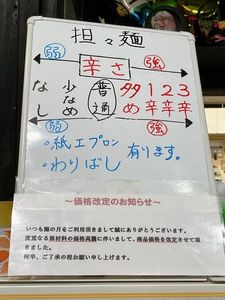 担々麺
弱 辛さ 強
なし 少なめ 普通 多め 1辛 2辛 3辛
弱 強
・紙エプロン 有ります。
・わりばし
～価格改定のお知らせ～
いつも麺の月をご利用頂きまして誠にありがとうございます。
度重なる原材料の価格高騰に伴いまして、商品価格を改定させて頂
きました。
何卒、ご了承の程お願い申し上げます。